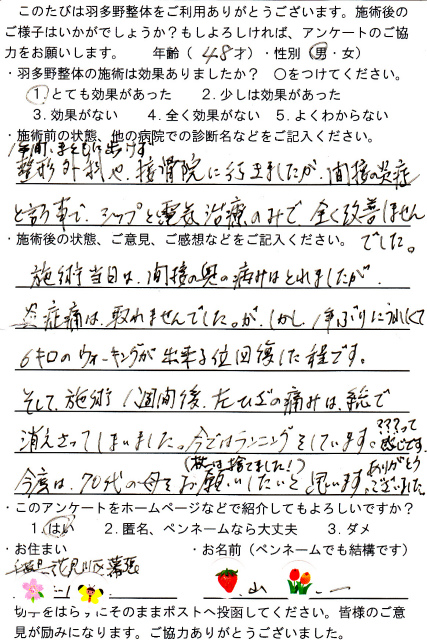 このたびは羽多野整体をご利用ありがとうございます。施術後の
ご様子はいかがでしょうか？もしよろしければ、アンケートのご協
力をお願いします。　　年齢（ 48才）・性別（男・女）
・羽多野整体の施術は効果ありましたか？　○をつけてください。
1. とても効果があった　　2. 少しは効果があった
3. 効果がない　　4. 全く効果がない　5. よくわからない
・施術前の状態、他の病院での診断名などをご記入ください。
1年間、まともに歩けず
整形外科や、接骨院に行きましたが、間接の炎症
と言う事で、シップと電気治療のみで、全く改善しません
・施術後の状態、ご意見、ご感想などをご記入ください。でした。
施術当日は、間接の奥の痛みはとれましたが、
炎症痛は、取れませんでした。が、しかし、1年ぶりにうれしくて
6キロのウォーキングが出来る位回復した程です。
そして、施術1週間後、左ひざの痛みは、全て
消えさってしまいました。今ではランニングをしています。???って
感じです。
（杖は捨てました！）
今度は、70代の母をお願いしたいと思います。ありがとう
ございました。
・このアンケートをホームページなどで紹介してもよろしいですか？
1. はい　　2. 匿名、ペンネームなら大丈夫　　3. ダメ
・お住まい　　・お名前（ペンネームでも結構です）
花見川区幕張
山
切手をはらずにそのままポストへ投函してください。皆様のご意
見が励みになります。ご協力ありがとうございました。